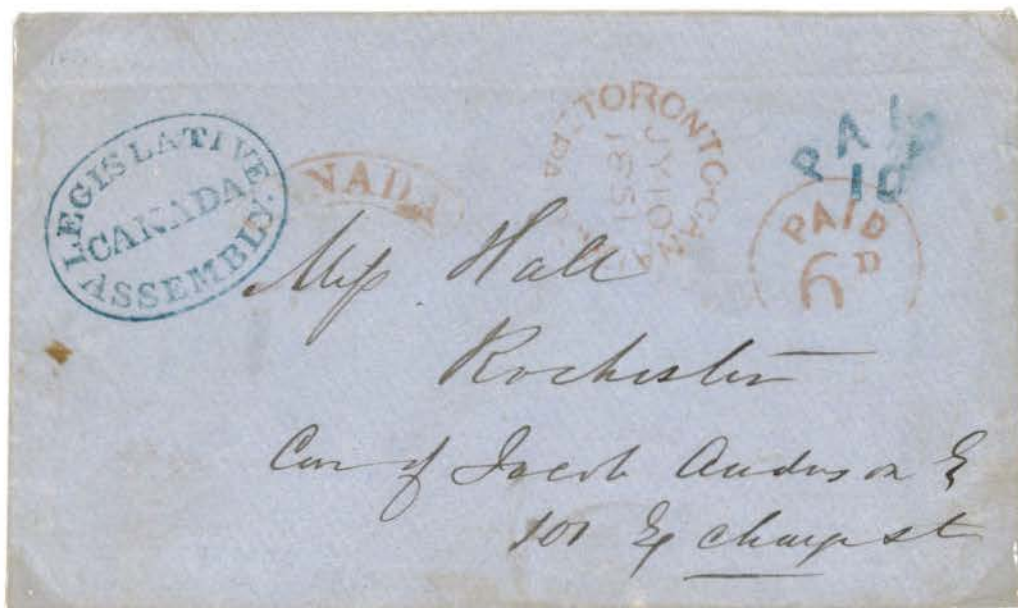 LEGISLATIVE
CANADA
ASSEMBLY.
NADA
TORONTO.CAN
JY 10
1851
PAID
10
PAID
6D
Miss Hall
Rochester
Care of Jacob Anderson E
101 Exchange st